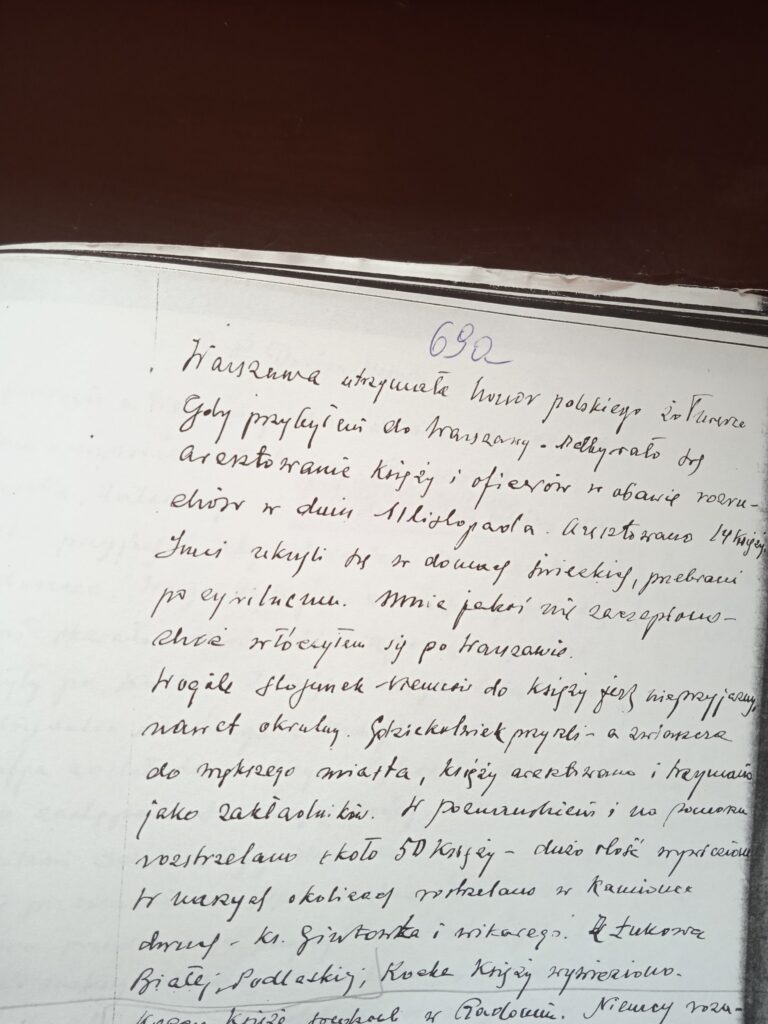 69a
Warszawa utrzymała honor polskiego żołnierza
Gdy przybyłem do Warszawy - odbywało się
aresztowanie księży i oficerów w obawie rozru-
chów w dniu 11 listopada. Aresztowano 14 księży
Inni ukryli się w domach świeckich, przebrani
po cywilnemu. Mnie jakoś nie zaczepiono -
choć włóczyłem się po Warszawie.
Wogóle stosunek Niemców do księży jest nieprzyjazny,
nawet okrutny. Gdziekolwiek przyszli - a zwłaszcza
do większego miasta, księży aresztowano i trzymano
jako zakładników. W poznańskiem i na pomorzu
rozstrzelano około 50 księży - dużo ilość wywieziono
W naszych okolicach rostrzelano w Kamionce
dwuch - ks. i wikarego. Z Łukowa
Białej Podlaskiej, Kocka księży wywieziono.
księże w Radomiu. Niemcy rozu-